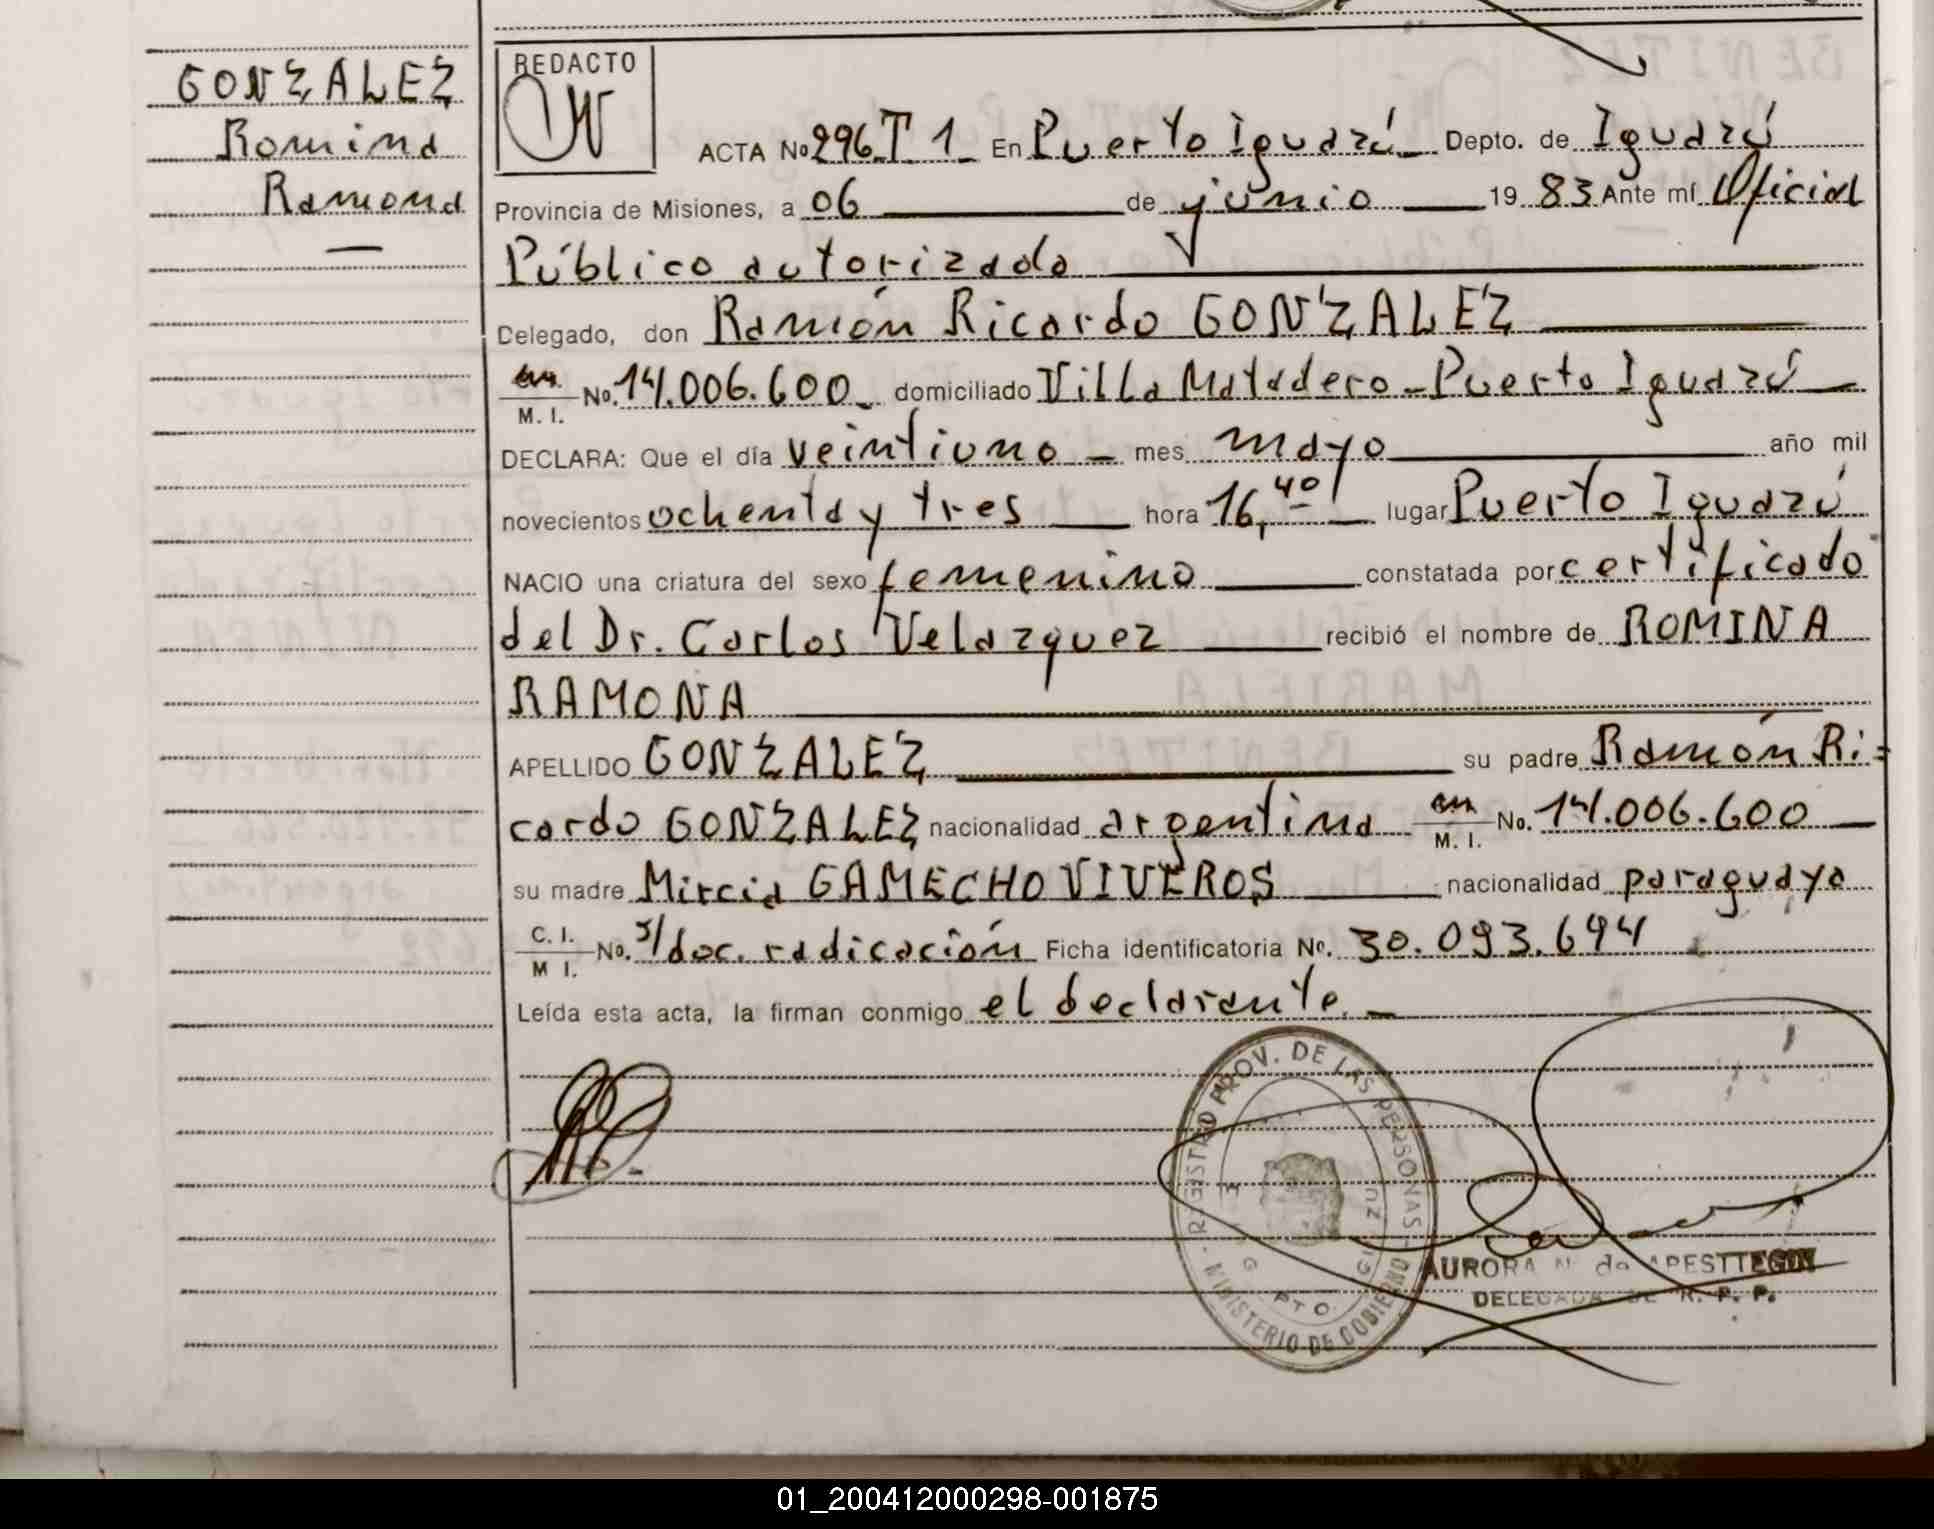 GONZALEZ
Romina
Ramona
REDACTO
ACTA No 296 T 1 En Puerto Iguazú Depto. de Iguazú
Provincia de Misiones, a 06 de junio 19 83 Ante mí Oficial
Público autorizado
Delegado, don Ramón Ricardo GONZALEZ
M. I. No. 14.006.600 domiciliado Villa Matadero - Puerto Iguazú
DECLARA: Que el día veintiuno mes mayo año mil
novecientos ochenta y tres hora 16,40 lugar Puerto Iguazú
NACIO una criatura del sexo femenino constatada por certificado
del Dr. Carlos Velazquez recibió el nombre de ROMINA
RAMONA
APELLIDO GONZALEZ su padre Ramón Ri=
cardo GONZALEZ nacionalidad argentina M. I. No. 14.006.600
su madre Mircia GAMECHO VIVEROS nacionalidad paraguaya
C. I. M I. No. s/doc. radicación Ficha identificatoria No. 30.093.694
Leída esta acta, la firman conmigo el declarante.
REGISTRO PROV. DE LAS PERSONAS
MINISTERIO DE GOBIERNO
PTO. IGUAZU
AURORA N. de APESTTEGUI
DELEGADA DE R. P. P.
01_200412000298-001875